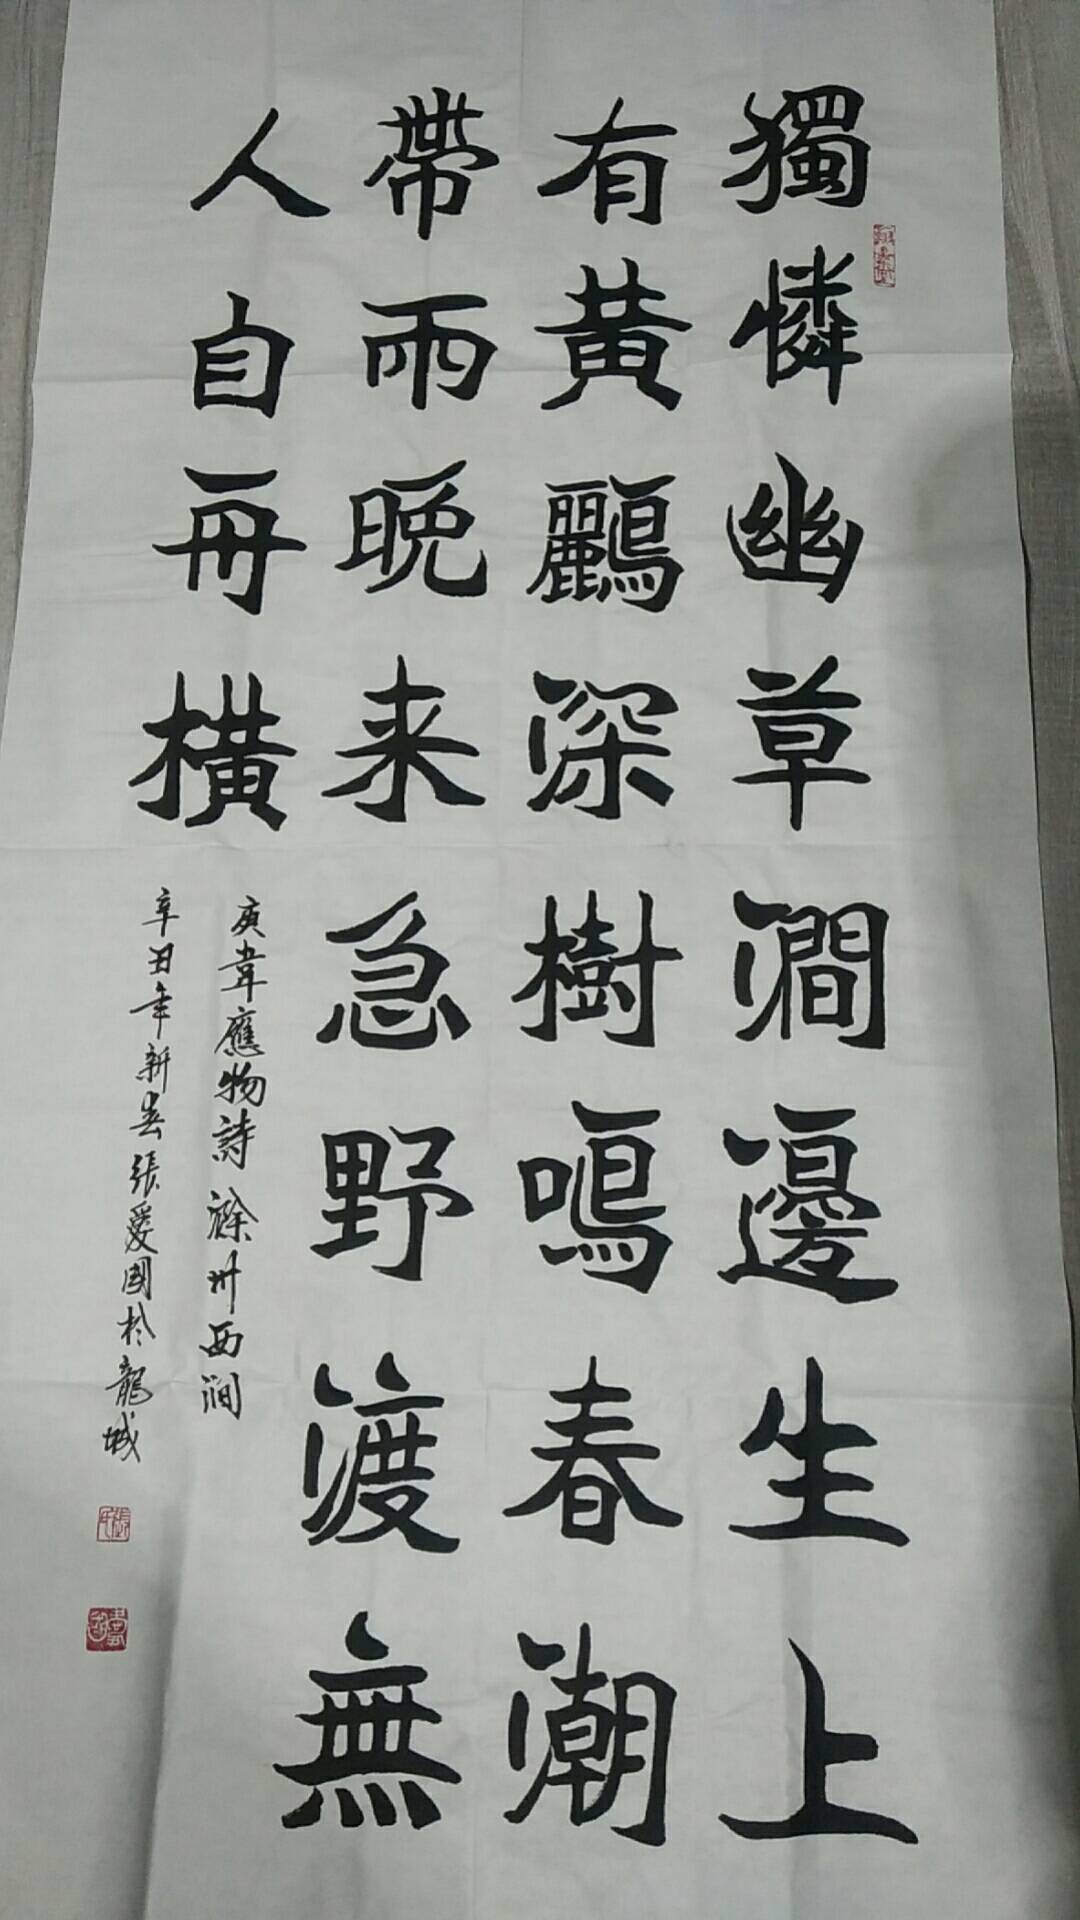 獨憐幽草澗邊生上
有黃鸝深樹鳴春潮
帶雨晚来急野渡無
人自舟橫
韋應物詩滁州西澗
辛丑年新春張愛國於龍城